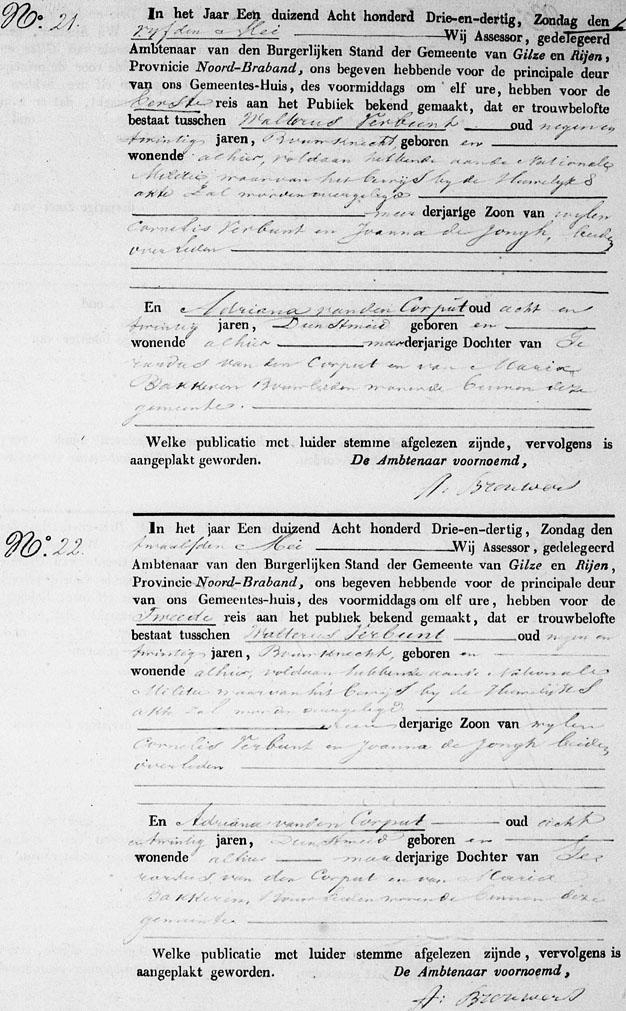 N.o 21.
In het Jaar Een duizend Acht honderd Drie-en-dertig, Zondag den
vyfden Mei Wij Assessor, gedelegeerd
Ambtenaar van den Burgerlijken Stand der Gemeente van Gilze en Rijen,
Provnicie Noord-Braband, ons begeven hebbende voor de principale deur
van ons Gemeentes-Huis, des voormiddags om elf ure, hebben voor de
Eerste reis aan het Publiek bekend gemaakt, dat er trouwbelofte
bestaat tusschen Walterus Verbunt oud negen en
twintig jaren, Bouwknecht, geboren en
wonende alhier, voldaan hebbende aan de Nationale
Militie, waarvan het bewijs by de Huwelyks
akte zal worden overgelegd
meerderjarige Zoon van wylen
Cornelis Verbunt en Joanna de Jongh, beide
overleden
En Adriana van den Corput oud acht en
twintig jaren, Dienstmeid geboren en
wonende alhier meerderjarige Dochter van Ge
rardus van den Corput en van Maria
Bakkeren Bouwlieden wonende binnen deze
gemeente.
Welke publicatie met luider stemme afgelezen zijnde, vervolgens is
aangeplakt geworden. De Ambtenaar voornoemd,
A: Brouwers
N.o 22.
In het jaar Een duizend Acht honderd Drie-en-dertig, Zondag den
twaalfden Mei Wij Assessor, gedelegeerd
Ambtenaar van den Burgerlijken Stand der Gemeente van Gilze en Rijen,
Provincie Noord-Braband, ons begeven hebbende voor de principale deur
van ons Gemeentes-huis, des voormiddags om elf ure, hebben voor de
Tweede reis aan het publiek bekend gemaakt, dat er trouwbelofte
bestaat tusschen Walterus Verbunt oud negen en
twintig jaren, Bouwknecht, geboren en
wonende alhier, voldaan hebbende aan de Nationale
Militie waarvan het bewijs by de Huwelyks
akte zal worden overgelegd
meerderjarige Zoon van wylen
Cornelis Verbunt en Joanna de Jongh beide
overleden
En Adriana van den Corput oud acht
en twintig jaren, Dienstmeid geboren en
wonende alhier meerderjarige Dochter van Ge
rardus van den Corput en van Maria
Bakkeren, Bouwlieden wonende binnen deze
gemeente.
Welke publicatie met luider stemme afgelezen zijnde, vervolgens is
aangeplakt geworden. De Ambtenaar voornoemd,
A: Brouwers